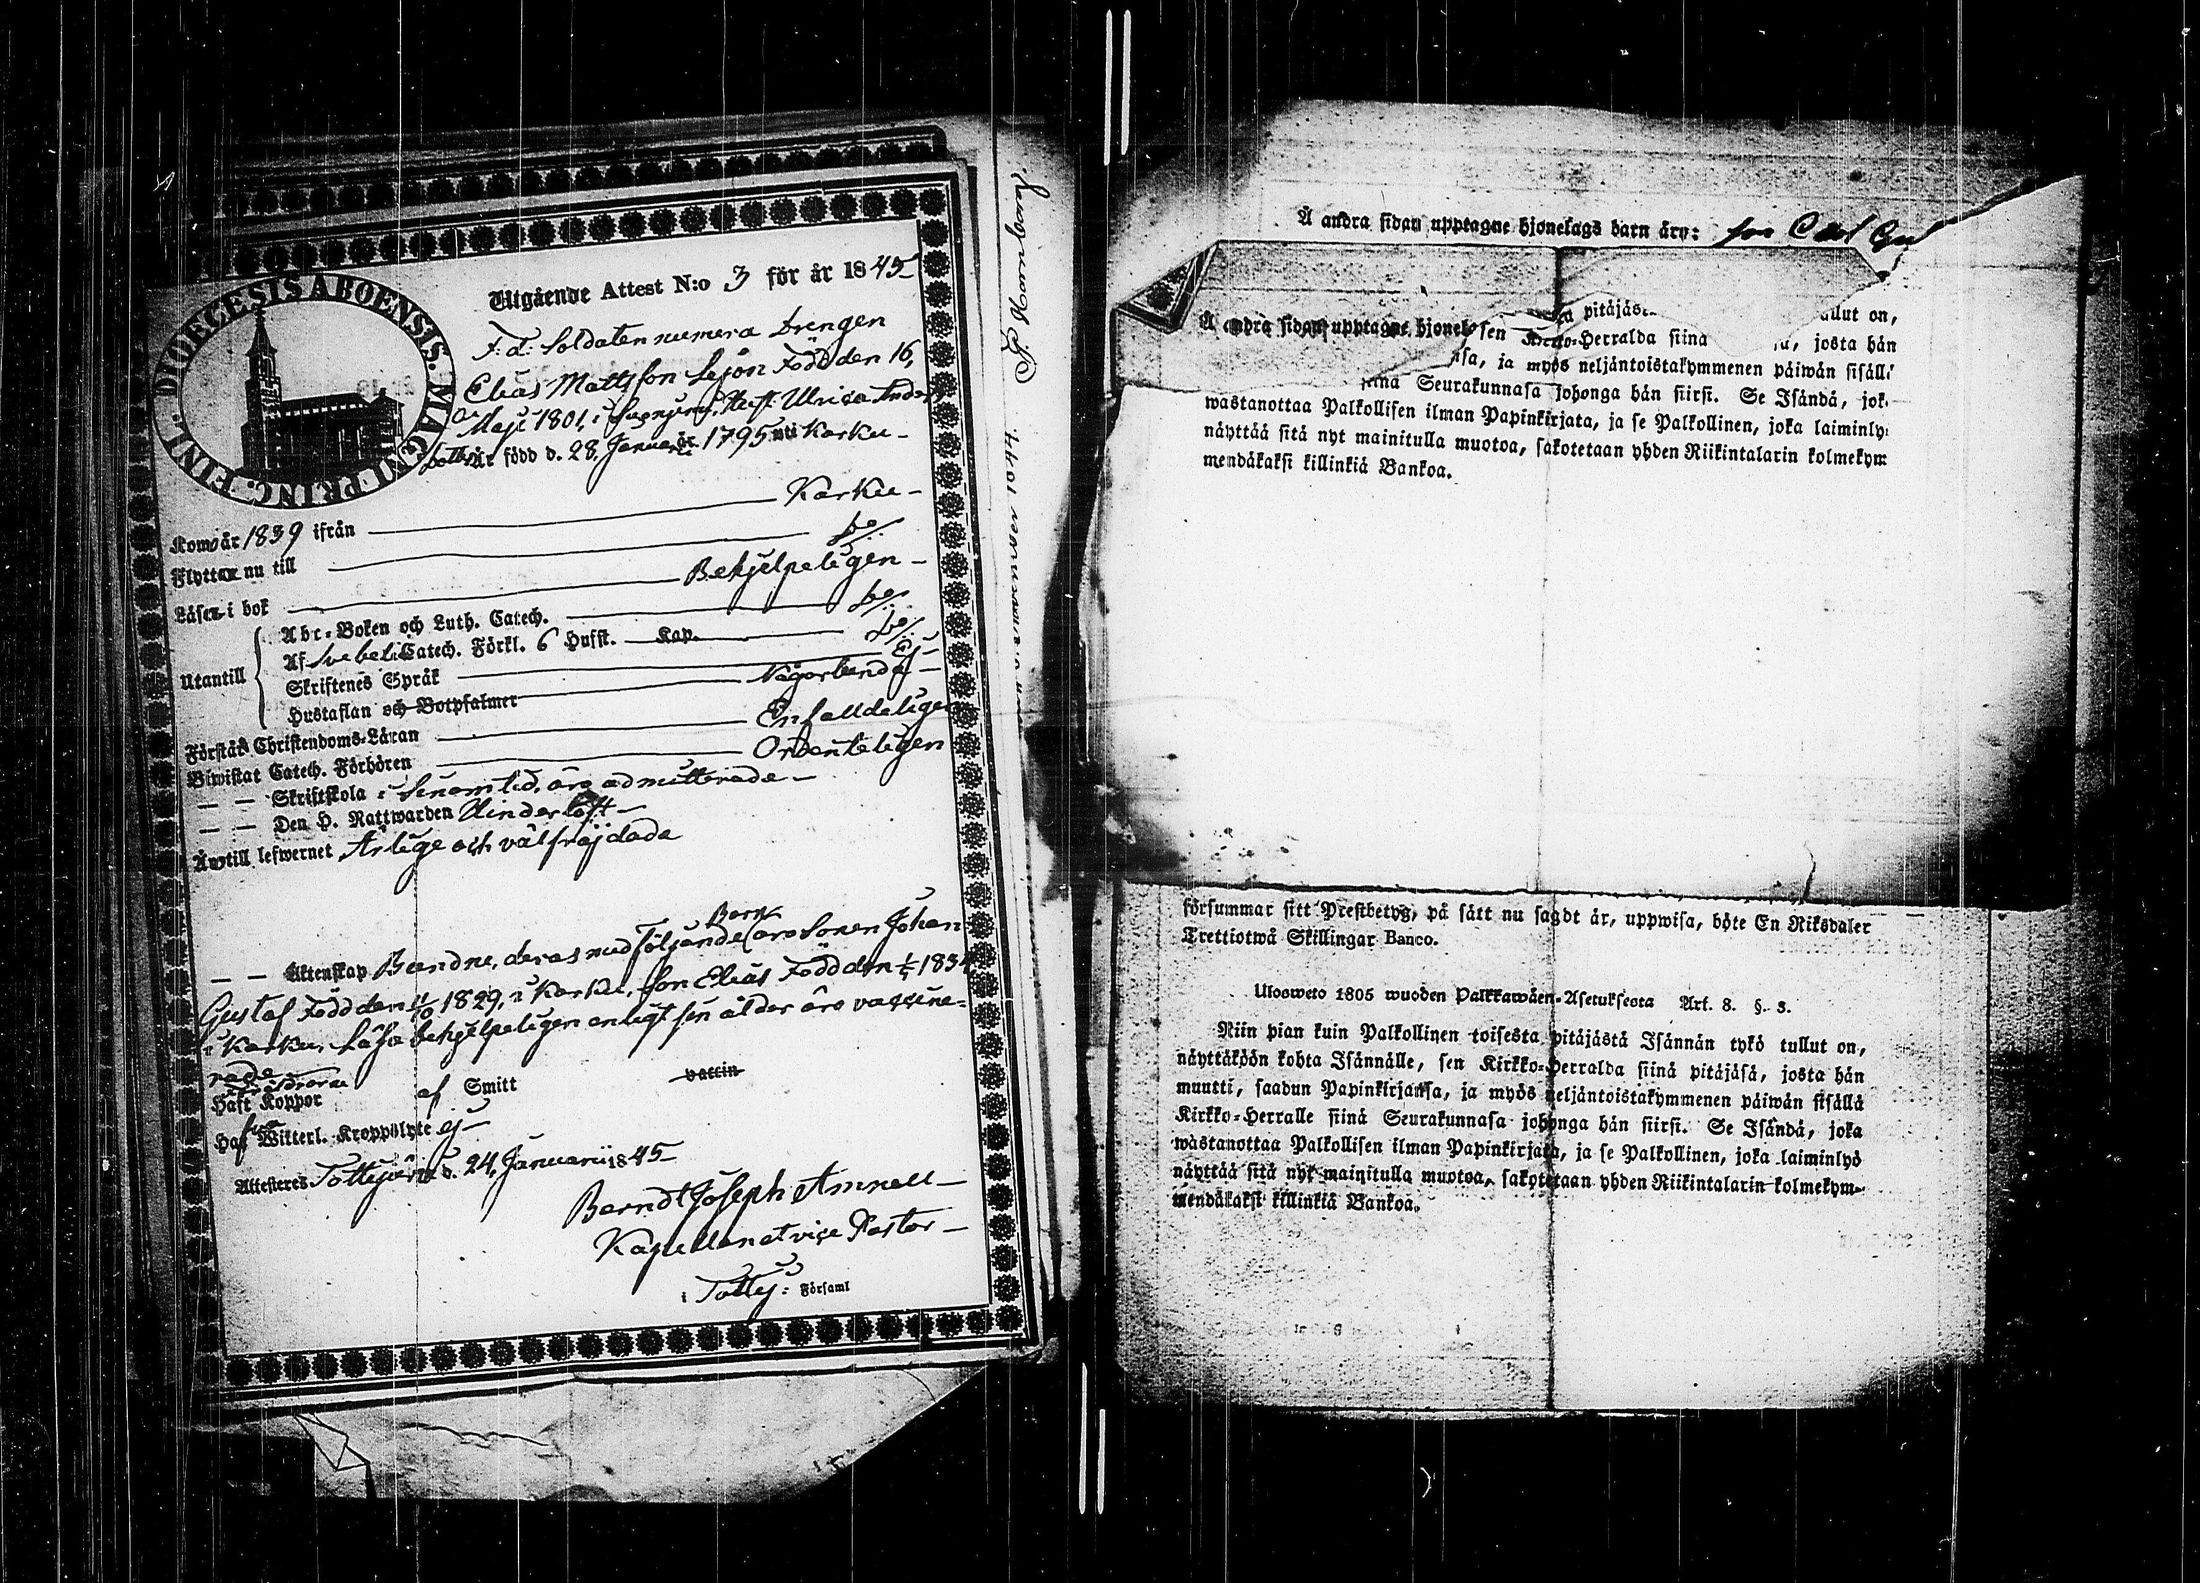 DIOECESIS ABOENSIS. MAGNI PRINC. FINL.
Utgående Attest N:o 3 för år 1845
F. d. Soldaten numera Drengen
Elias Mattsson Lejon Född den 16,
Maji 1801, i Hust. Ulrica Anders
dotter är född d. 28, Januarii 1795 uti Karku -
Kom år 1839 ifrån Karku -
Flyttar nu till do/
Läser i bok Behjelpeligen -
Utantill
Abc-Boken och Luth. Catech. do/
Af Svebelii Catech. Förkl. 6 Hufst. Kap. do/
Skriftenes Språk Ej -
Hustaflan och Botpsalmer Någorlunda -
Förstår Christendoms-Läran Enfaldeligen
Biwistat Catech. Förhören Ordenteligen
— — Skriftskola i sinom tid, äro admitterade -
— — Den H. Nattwarden Hinderlöst -
Äro till lefwernet Ärlige och välfräjdade
Barn
— — Äktenskap Bundne, deras medföljande äro Sonen Johan
Gustaf Född den 11/10 1829, i Karku, Son Elias Född den 1834
i Karku, Läsa behjelpeligen enligt sin ålder äro vaccine-
rade
Föräldrarne
Haft Koppor af Smitt vaccin
Haf Witterl. Kroppslyte ej -
Attesteres Tottijärvi d. 24, Januarii 1845 -
Berndt Joseph Amnell -
Kapellan et vice Pastor -
i Tottij: Församl
November 1844.
Å andra sidan upptagne hjonelags barn äro: son Carl
Å andra sidan upptagne hjonel
pitäjäs
ullut on,
sen Kirkko-Herralda siinä
josta hän
nsa, ja myös neljäntoistakymmenen päiwän sisäll
Seurakunnasa johonga hän siirsi. Se Isändä, jok
wastanottaa Palkollisen ilman Papinkirjata, ja se Palkollinen, joka laiminly
näyttää sitä nyt mainitulla muotoa, sakotetaan yhden Riikintalarin kolmekym
mendäkaksi killinkiä Bankoa.
försummar sitt Prestbetyg, på sätt nu sagdt är, uppwisa, böte En Riksdaler
Trettiotwå Skillingar Banco.
Ulosweto 1805 wuoden Palkkawäen-Asetuksesta Art. 8. §. 3.
Niin pian kuin Palkollinen toisesta pitäjästä Isännän tykö tullut on,
näyttäköön kohta Isännälle, sen Kirkko-Herralda siinä pitäjäsä, josta hän
muutti, saadun Papinkirjansa, ja myös neljäntoistakymmenen päiwän sisällä
Kirkko-Herralle siinä Seurakunnasa johonga hän siirsi. Se Isändä, joka
wastanottaa Palkollisen ilman Papinkirjata, ja se Palkollinen, joka laiminlyö
näyttää sitä nyt mainitulla muotoa, sakotetaan yhden Riikintalarin kolmekym-
mendäkaksi killinkiä Bankoa.